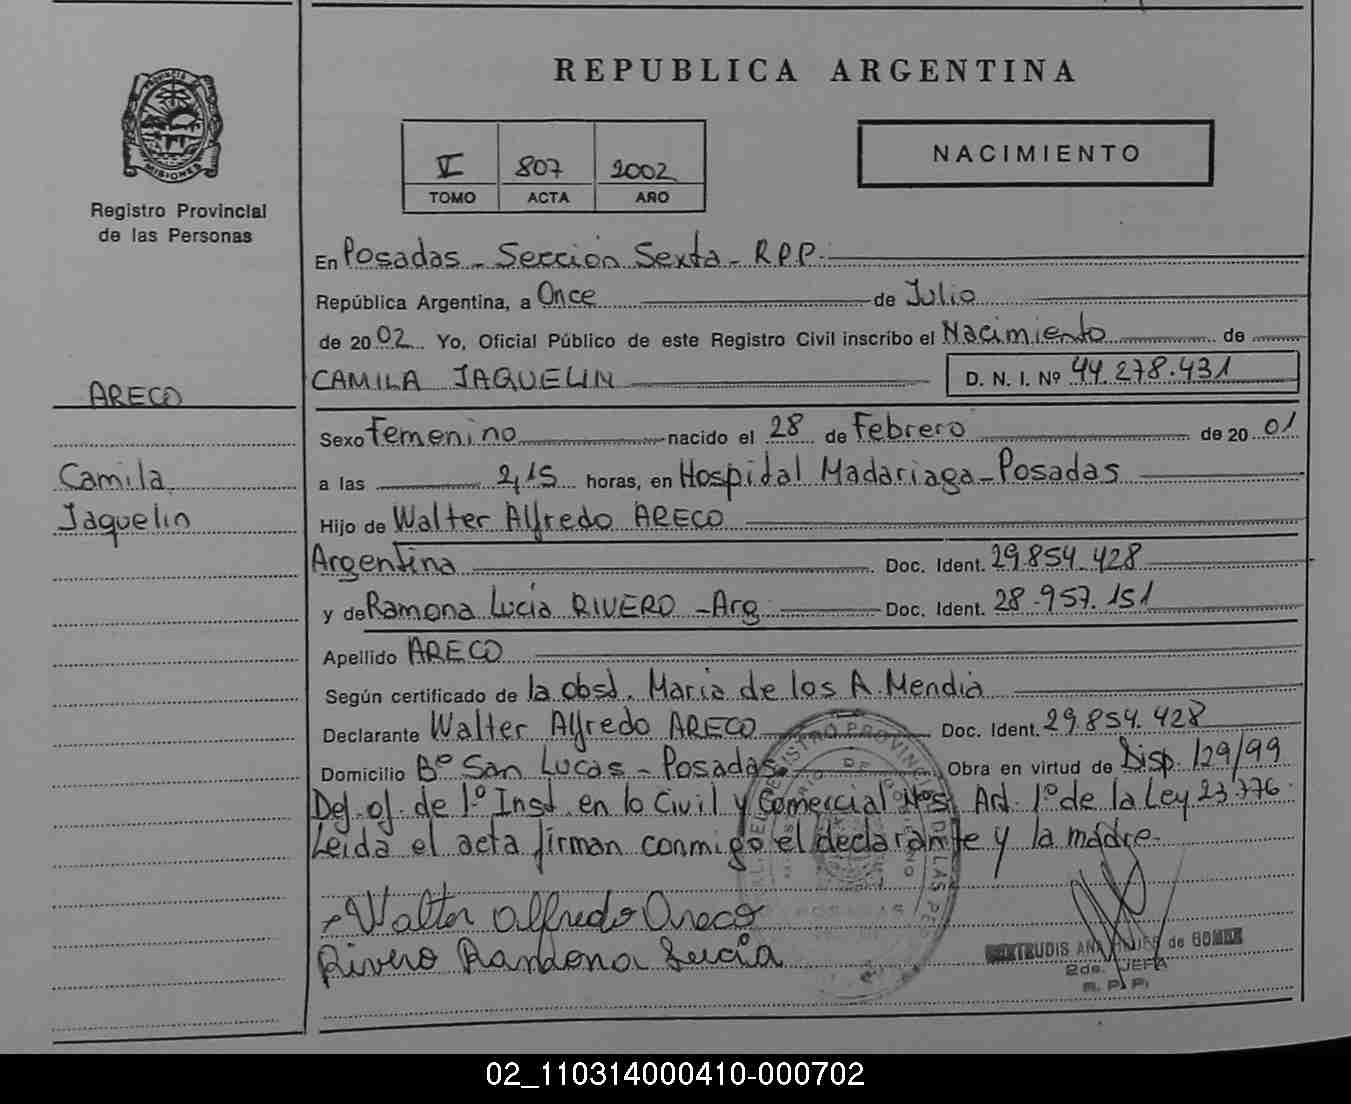 REPUBLICA ARGENTINA
MISIONES
Registro Provincial
de las Personas
V 807 2002
TOMO ACTA AÑO
NACIMIENTO
En Posadas - Sección Sexta - R.P.P.
República Argentina, a Once de Julio
de 2002 Yo, Oficial Público de este Registro Civil inscribo el Nacimiento de
CAMILA JAQUELIN D. N. I. Nº 44.278.431
ARECO
Camila
Jaquelin
Sexo Femenino nacido el 28 de Febrero de 2001
a las 2,15 horas, en Hospidal Madariaga - Posadas
Hijo de Walter Alfredo ARECO
Argentina Doc. Ident. 29.854.428
y de Ramona Lucía RIVERO - Arg Doc. Ident. 28.957.151
Apellido ARECO
Según certificado de la obst. Maria de los A. Mendia
Declarante Walter Alfredo ARECO Doc. Ident. 29.854.428
Domicilio Bº San Lucas - Posadas. Obra en virtud de Disp. 129/99
Def. of. de 1º Inst. en lo Civil y Comercial Nº5. Art. 1º de la Ley 23.776.
Leida el acta firman conmigo el declarante y la madre.
Walter Alfredo Areco
Rivero Ramona Lucía
ANA de GOMEZ
2da. JEFA
R. P. P.
REGISTRO PROVINCIAL DE LAS PE
DE GOBIERNO
POSADAS
02_110314000410-000702